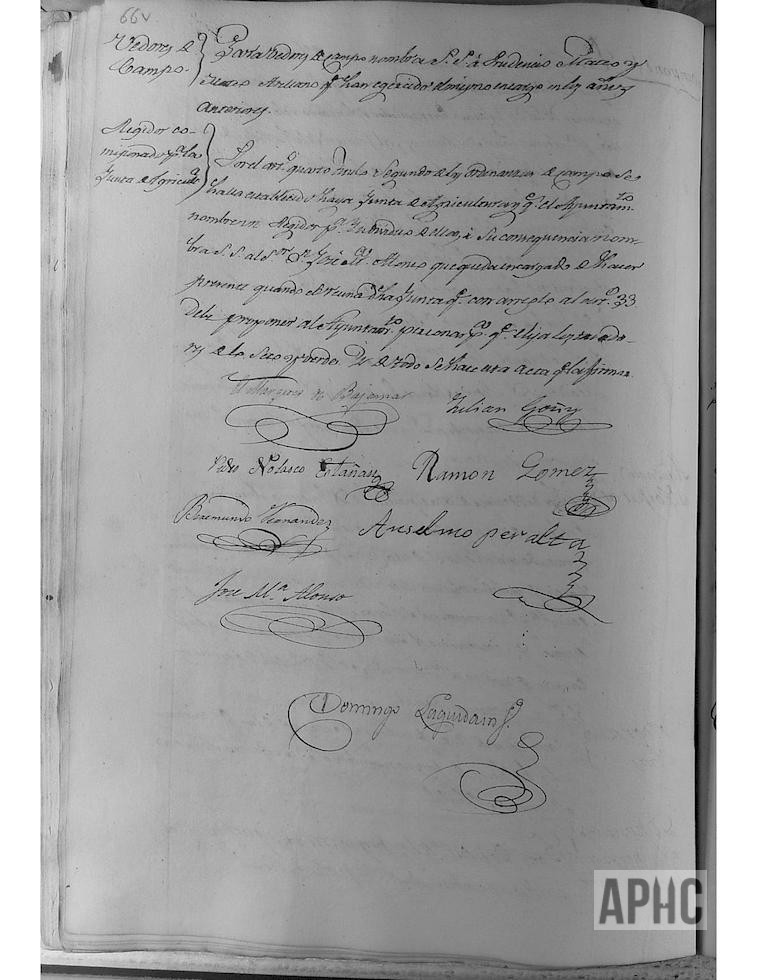 66v
Vedores de
Campo.
Para Vedores de campo nombra S. S. á Prudencio Mateo y
Arellano q.e han egercido el mismo encargo en los años
anteriores.
Regidor co-
misionado p.a la
Junta de Agricult.a
Por el art.o quarto titulo Segundo de las ordenanzas de campo se
halla establecido haya Junta de Agricultura y q.e el Ayuntam.to
nombre un Regidor p.a Individuo de ella, á su consequencia nom-
bra S. S. al S.or D.n José M.a Alonso que queda encargado de hacer
presente quando se reuna dha Junta q.e con arreglo al art.o 33
debe proponer al Ayuntam.to personas p.a q.e elija los
de lo Seco y verde. Y de todo se hace esta acta q.e la firman
El Marques de Bajamar
Julian Goñy
Pedro Nolasco Estañan
Ramon Gomez
Beremundo Hernandez
Anselmo peralta
Jose M.a Alonso
Domingo Laquidain
APHC